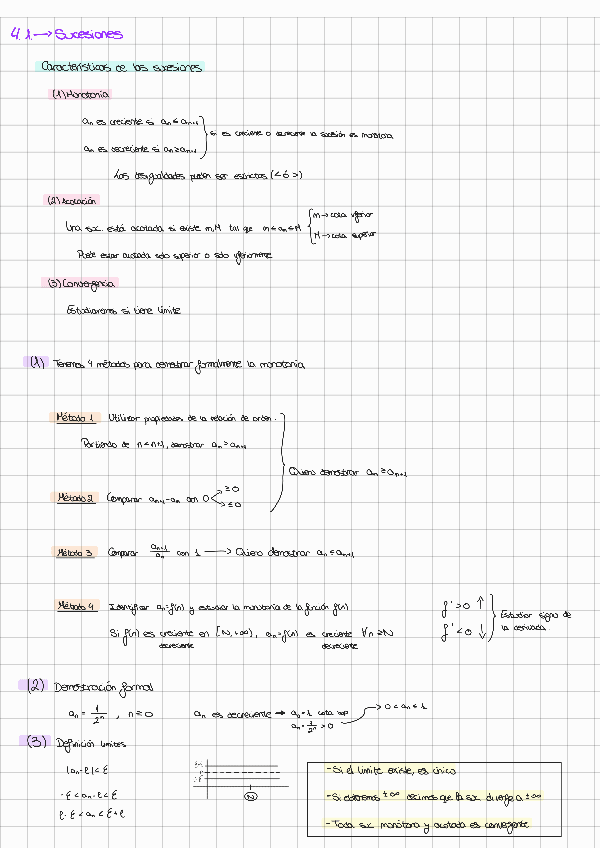 4.1.→ Sucesiones
Características de las sucesiones
(1) Monotonía
aₙ es creciente si aₙ ≤ aₙ₊₁
si es creciente o decreciente la sucesión es monótona
aₙ es decreciente si aₙ ≥ aₙ₊₁
Las desigualdades pueden ser estrictas (< ó >)
(2) Acotación
Una suc. está acotada si existe m, M tal que m ≤ aₙ ≤ M
m → cota inferior
M → cota superior
Puede estar acotada solo superior o solo inferiormente
(3) Convergencia
Estudiaremos si tiene límite
(1) Tenemos 4 métodos para demostrar formalmente la monotonía
Método 1 Utilizar propiedades de la relación de orden.
Partiendo de n < n+1, demostrar aₙ > aₙ₊₁
Quiero demostrar aₙ ≥ aₙ₊₁
Método 2 Comparar aₙ₊₁ - aₙ con 0 ≥ 0
≤ 0
Método 3 Comparar aₙ₊₁/aₙ con 1 → Quiero demostrar aₙ ≤ aₙ₊₁
Método 4 Identificar aₙ = f(n) y estudiar la monotonía de la función f(n)
f' > 0 ↑
f' < 0 ↓
Estudiar signo de
la derivada.
Si f(n) es creciente en [N, +∞), aₙ = f(n) es creciente ∀n ≥ N
decreciente decreciente
(2) Demostración formal
aₙ = 1/2ⁿ , n ≥ 0 aₙ es decreciente → a₀ = 1 cota sup → 0 < aₙ ≤ 1
aₙ = 1/2ⁿ > 0
(3) Definición límites
|aₙ - ℓ| < ε
-ε < aₙ - ℓ < ε
ℓ - ε < aₙ < ε + ℓ
N
- Si el límite existe, es único
- Si obtenemos ±∞ decimos que la suc diverge a ±∞
- Toda suc monótona y acotada es convergente